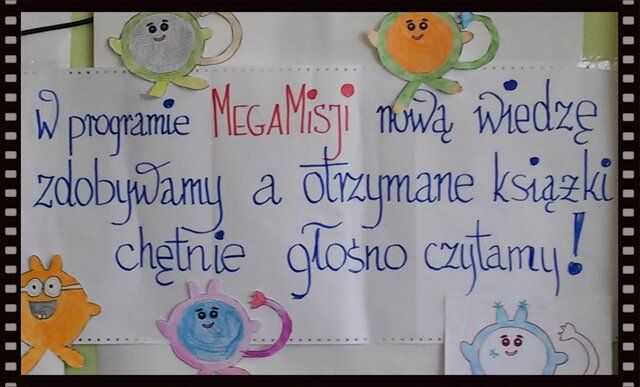 W programie MEGAMISJI nową wiedzę
zdobywamy a otrzymane książki
chętnie głośno czytamy!